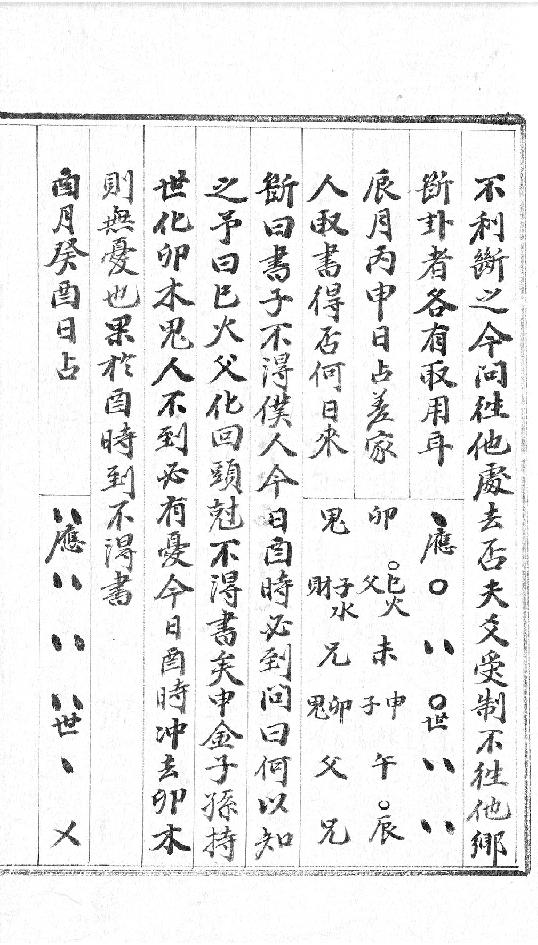 不利斷之今问徃他處去否夫爻受制不徃他鄉
斷卦者各有取用耳
應 世
辰月丙申日占差家
卯 巳火 未 申 午 辰
父 子
人取書得否何日來
鬼 子水 兄 卯 父 兄
財 鬼
斷曰書子不淂僕人今日酉時必到问曰何以知
之予曰巳火父化回頭尅不淂書矣申金子孫持
世化卯木鬼人不到必有憂今日酉時冲去卯木
則無憂也果於酉時到不淂書
酉月癸酉日占
應 世